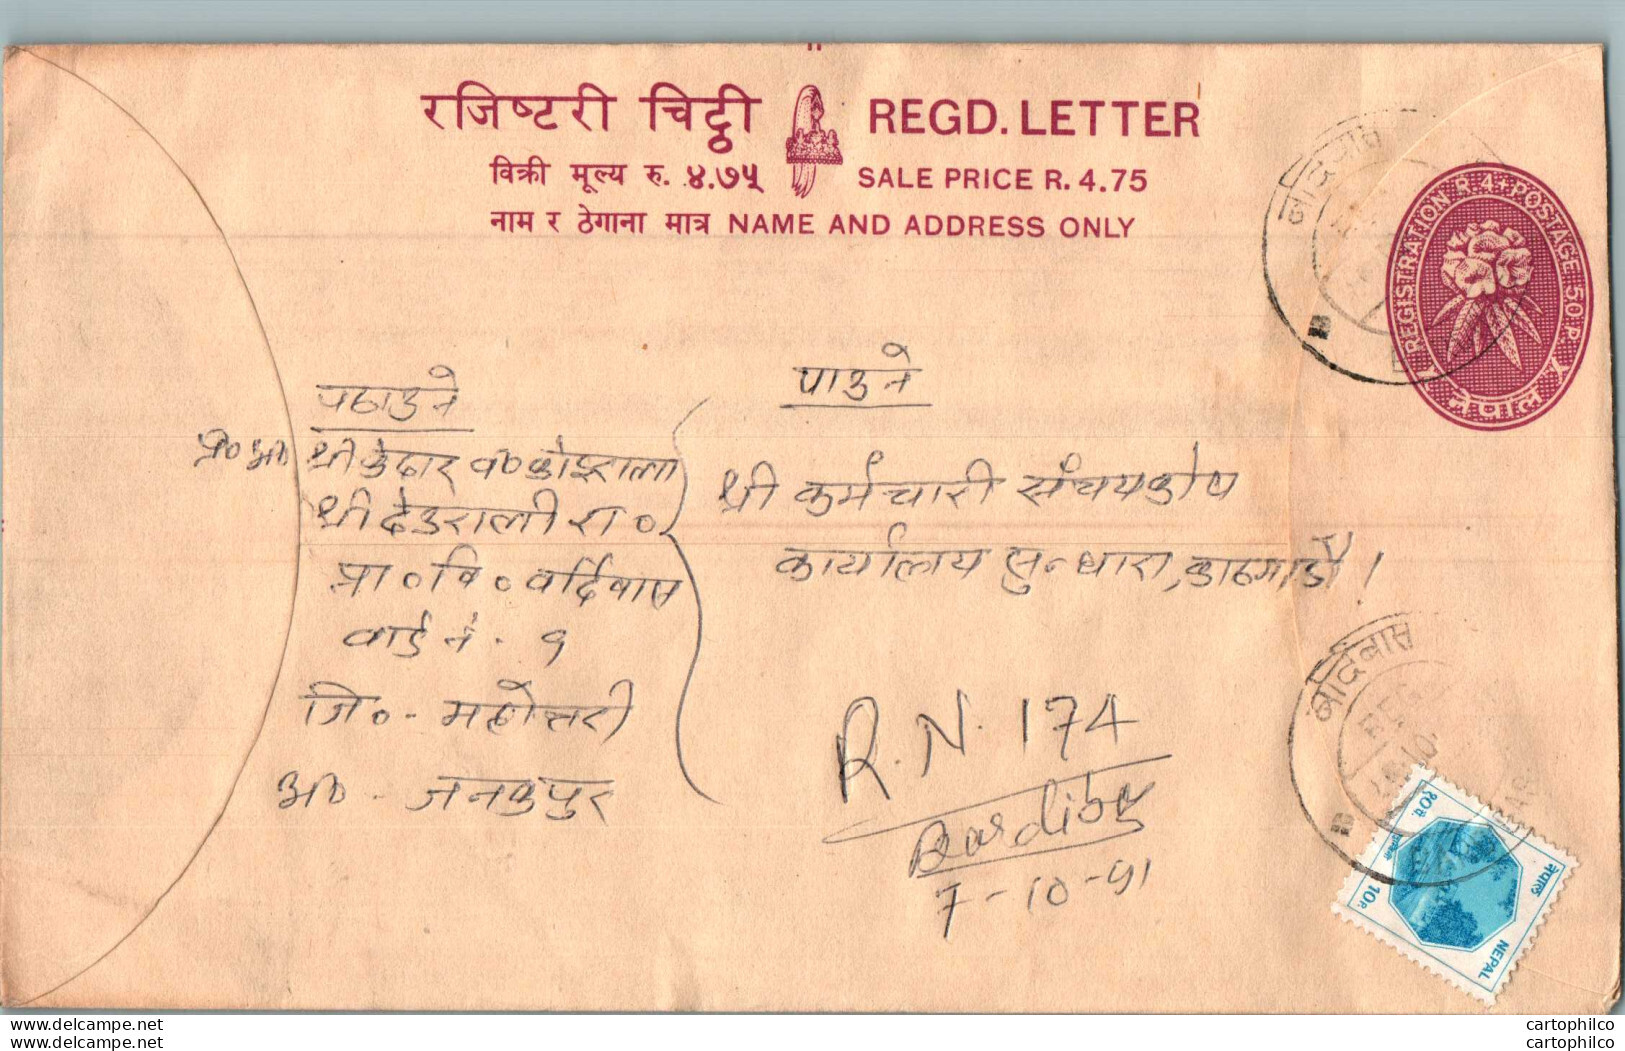 रजिष्टरी चिट्ठी REGD. LETTER
विक्री मूल्य रु. ४.७५ SALE PRICE R. 4.75
नाम र ठेगाना मात्र NAME AND ADDRESS ONLY
REGISTRATION R.4 POSTAGE 50P.
नेपाल
बर्दिबास
पठाउने
प्र० अ० श्री केदार ब० कोइराला
श्री देउराली रा०
प्रा० वि० बर्दिवास
वार्ड नं. १
जि०. महोत्तरी
अ० - जनकपुर
पाउने
श्री कर्मचारी संचयकोष
कार्यालय सुन्धारा, काठमाडौं।
R.N. 174
Bardibas
7-10-91
बर्दिबास
१० पै.
नेपाल
10 P.
NEPAL
www.delcampe.net
www.delcampe.net
cartophilco
cartophilco